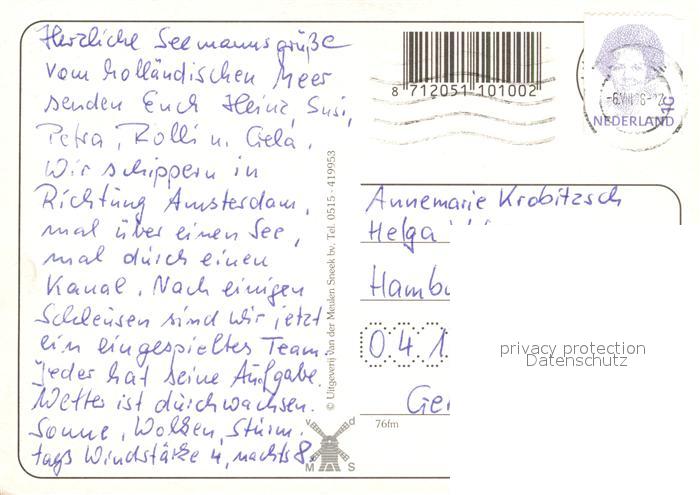 Herzliche Seemannsgrüße
vom holländischen Meer
senden Euch Heinz, Susi,
Petra, Rolli u. Gela.
Wir schippern in
Richtung Amsterdam,
mal über einen See,
mal durch einen
Kanal. Nach einigen
Schleusen sind wir jetzt
ein eingespieltes Team.
Jeder hat seine Aufgabe.
Wetter ist durchwachsen.
Sonne, Wolken, Sturm,
tags Windstärke 4, nachts 8.
© Uitgeverij Van der Meulen Sneek bv. Tel. 0515 - 419953
v d
M S
8 712051 101002
NEDERLAND
Annemarie Krobitzsch
Helga
Hambu
0 4 1
Ger
76fm
privacy protection
Datenschutz